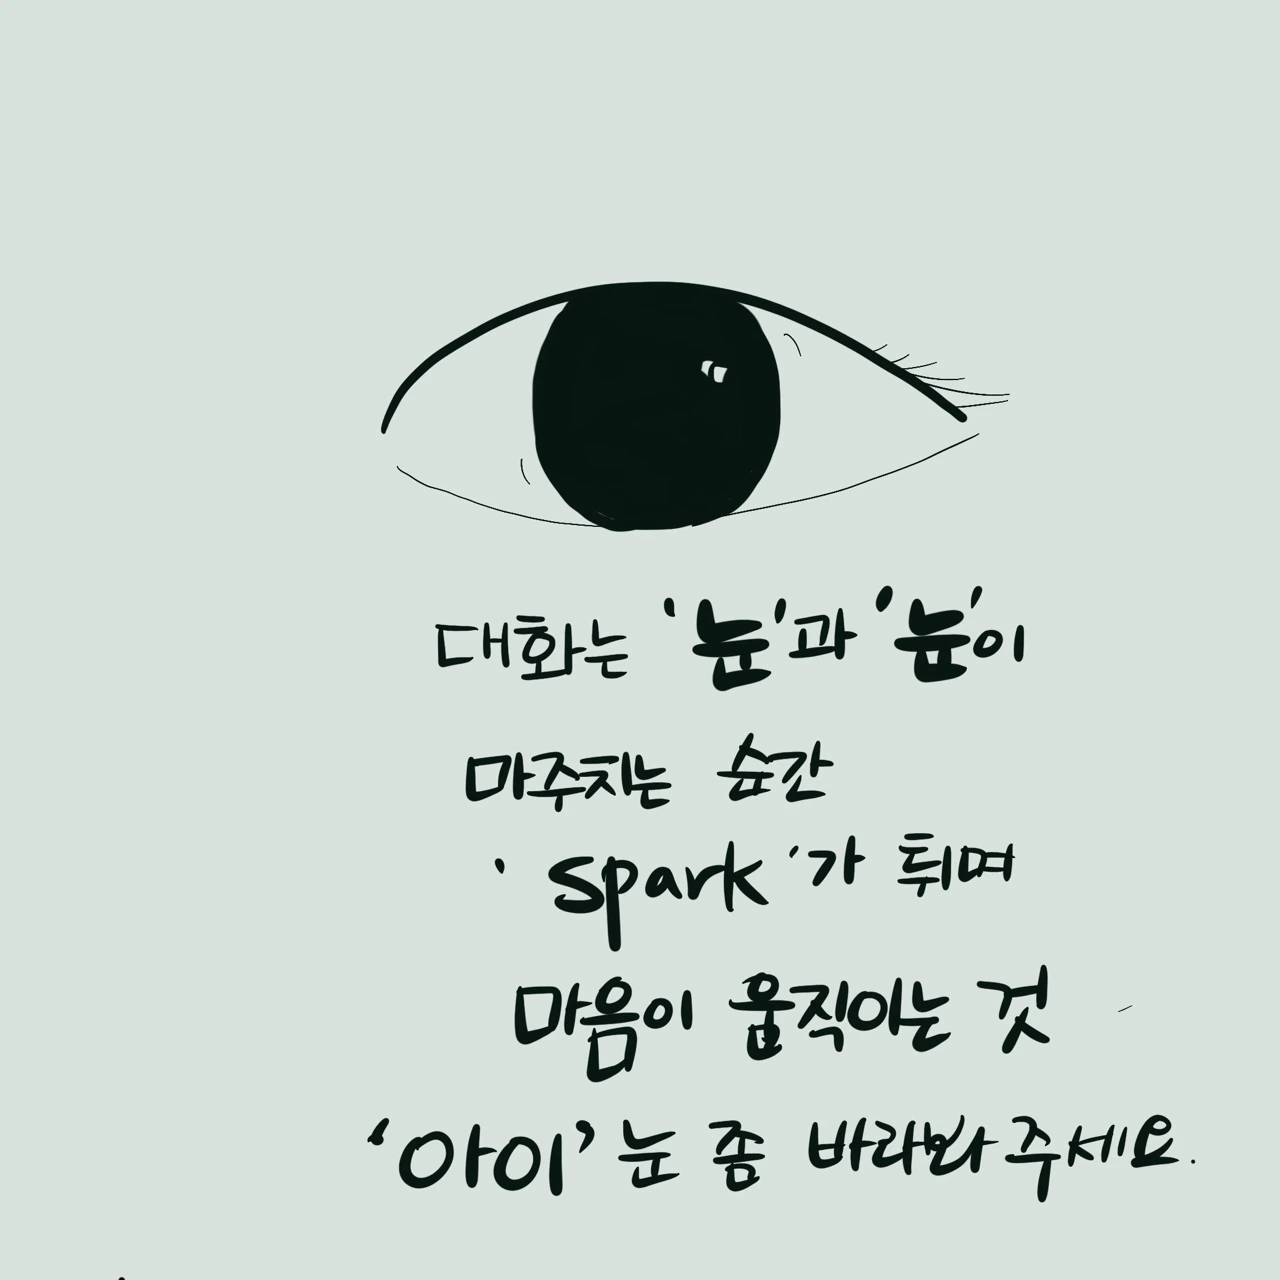 대화는 '눈'과 '눈'이
마주치는 순간
'spark'가 튀며
마음이 움직이는 것
'아이' 눈 좀 바라봐 주세요.